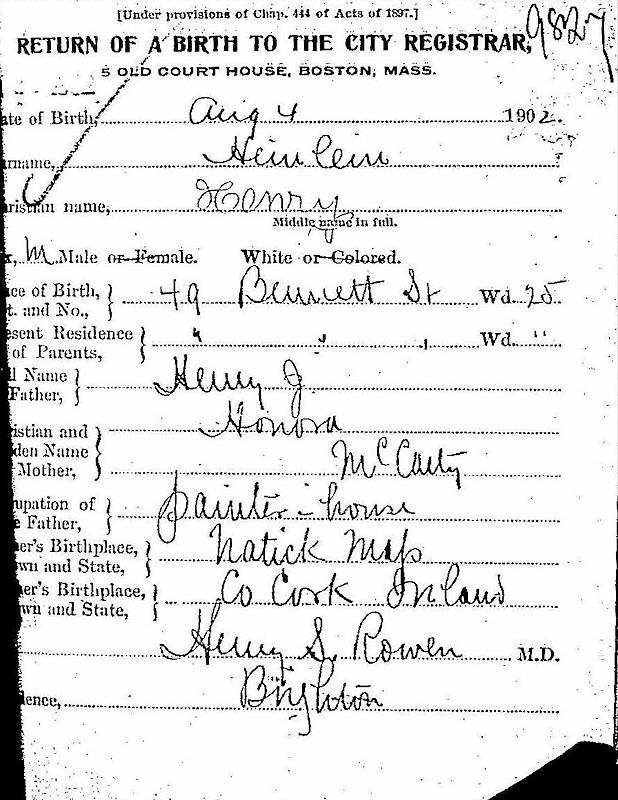 [Under provisions of Chap. 444 of Acts of 1897.]
9827
RETURN OF A BIRTH TO THE CITY REGISTRAR,
5 OLD COURT HOUSE, BOSTON, MASS.
ate of Birth, Aug 4 1902.
rname, Heinlein
ristian name, Henry
Middle name in full.
x, M. Male or Female. White or Colored.
ce of Birth, t. and No., } 49 Bennett St Wd. 25
esent Residence of Parents, } " " " Wd. "
l Name Father, } Henry J.
istian and den Name Mother, } Honora
McCarty
upation of e Father, } painter - house
er's Birthplace, wn and State, } Natick Mass
er's Birthplace, wn and State, } Co Cork Ireland
Henry S. Rowen M.D.
dence, Brighton